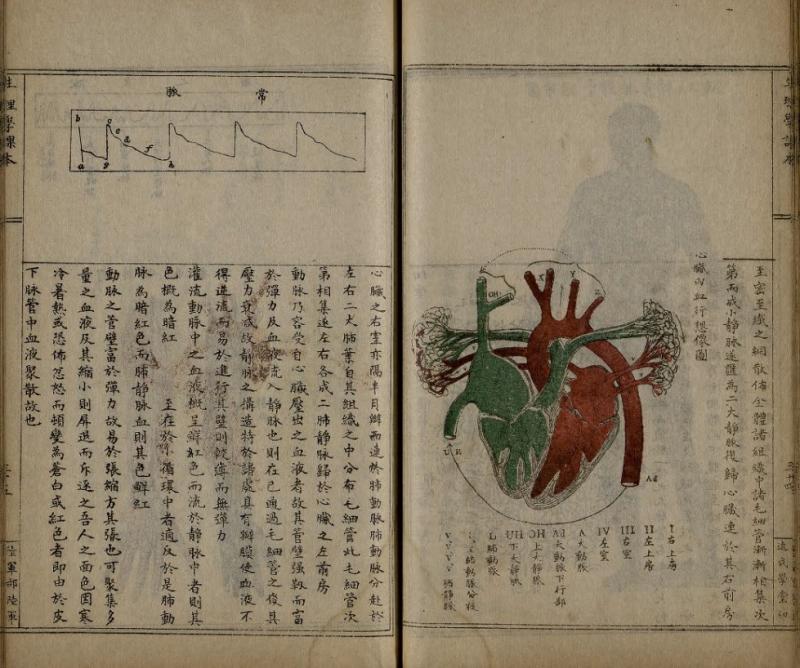 生理學課本
至密至纖之網散佈全體諸組織中諸毛細管漸漸相集次
第而成小靜脈遂匯為二大靜脈復歸心臟連於其右前房
心臟內血行想像圖
OH
X
Y
Z
Ad
I 右上房
II 左上房
III 右室
IV 左室
A 大動脈
Ad 大動脈下行部
OH 上大靜脈
UH 下大靜脈
L 肺動脈
肺動脈分枝
肺靜脈
學堂印
常脈
b
a
c
g
e
d
f
h
心臟之右室亦隔半月瓣而連於肺動脈肺動脈分赴於
左右二大肺葉自其組織之中分布毛細管此毛細管次
第相集遂左右各成二肺靜脈歸於心臟之左前房
動脈乃容受自心臟壓出之血液者故其管壁強靱而富
於彈力及血液流入靜脈也則在已通過毛細管之後其
壓力衰減故靜脈之構造特於諸處具有瓣膜使血液不
得逆流而易於進行其壁則較薄而無彈力
灌流動脈中之血液概呈鮮紅色而流於靜脈中者則其
色概為暗紅 至在於小循環中者適反於是肺動
脈為暗紅色而肺靜脈血則其色鮮紅
動脈之管壁富於彈力故易於張縮方其張也可聚集多
量之血液及其縮小則屏退而斥逐之吾人之面色因寒
冷暑熱或恐怖忿怒而頓變為蒼白或紅色者即由於皮
下脈管中血液聚散故也
生理學課本
陸軍部陸軍